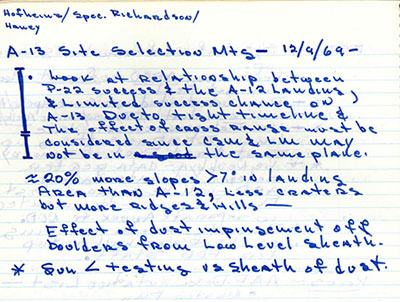 Hofheins/Spec. Richardson/
Haney
A-13 Site Selection Mtg — 12/9/69 —
• Look at Relationship between
P-22 success & the A-12 Landing,
& Limited success chance on
A-13 Due to tight timeline &
The effect of cross Range - must be
considered since CSM & LM may
not be in the same plane.
≈ 20% more slopes >7° in landing
AREA than A-12, Less craters
but more Ridges & Hills —
Effect of dust impingement off
boulders from Low Level sheath.
* Sun < testing vs sheath of dust.